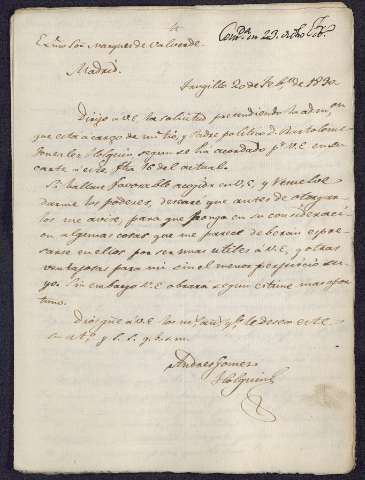 Contda en 23. dicho
Exmo Sor Marques de Valverde.
Madrid.
Trujillo 20 de de 1830
Dirijo á V.E. la solicitud pretendiendo la admon, en
que está á cargo de mi tio, y Padre politico D. Bartolomé
Gonzalez Holguin segun se ha acordado pr. V.E. en su
carta á este fha 16 del actual.
Si hallare favorable acojida en V.E. y
darme los poderes, deseare que antes de otorgar
los me avise, para que ponga en su consideraci
on algunas cosas que me parece deberán espre
sarse en ellos por ser mas utiles á V.E., y otras
ventajosas para mi sin el menor perjuicio su
yo. Sin embargo V.E. obrará segun estime mas opor
tuno.
Dios gue á V.E. los ms. as. qe. le desea este
su atto. y S. S. q. b. s. m.
Andres Gomez
Holguin